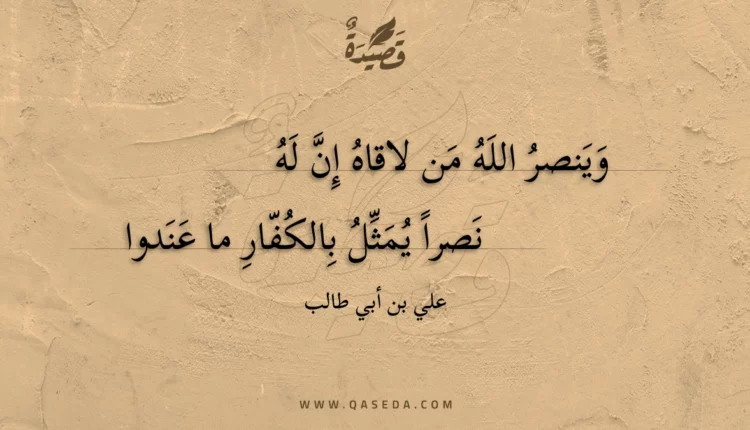 قَصِيْدَةٌ
وَيَنصرُ اللَهُ مَن لاقاهُ إِنَّ لَهُ
نَصراً يُمَثِّلُ بِالكُفّارِ ما عَنَدوا
علي بن أبي طالب
WWW.QASEDA.COM